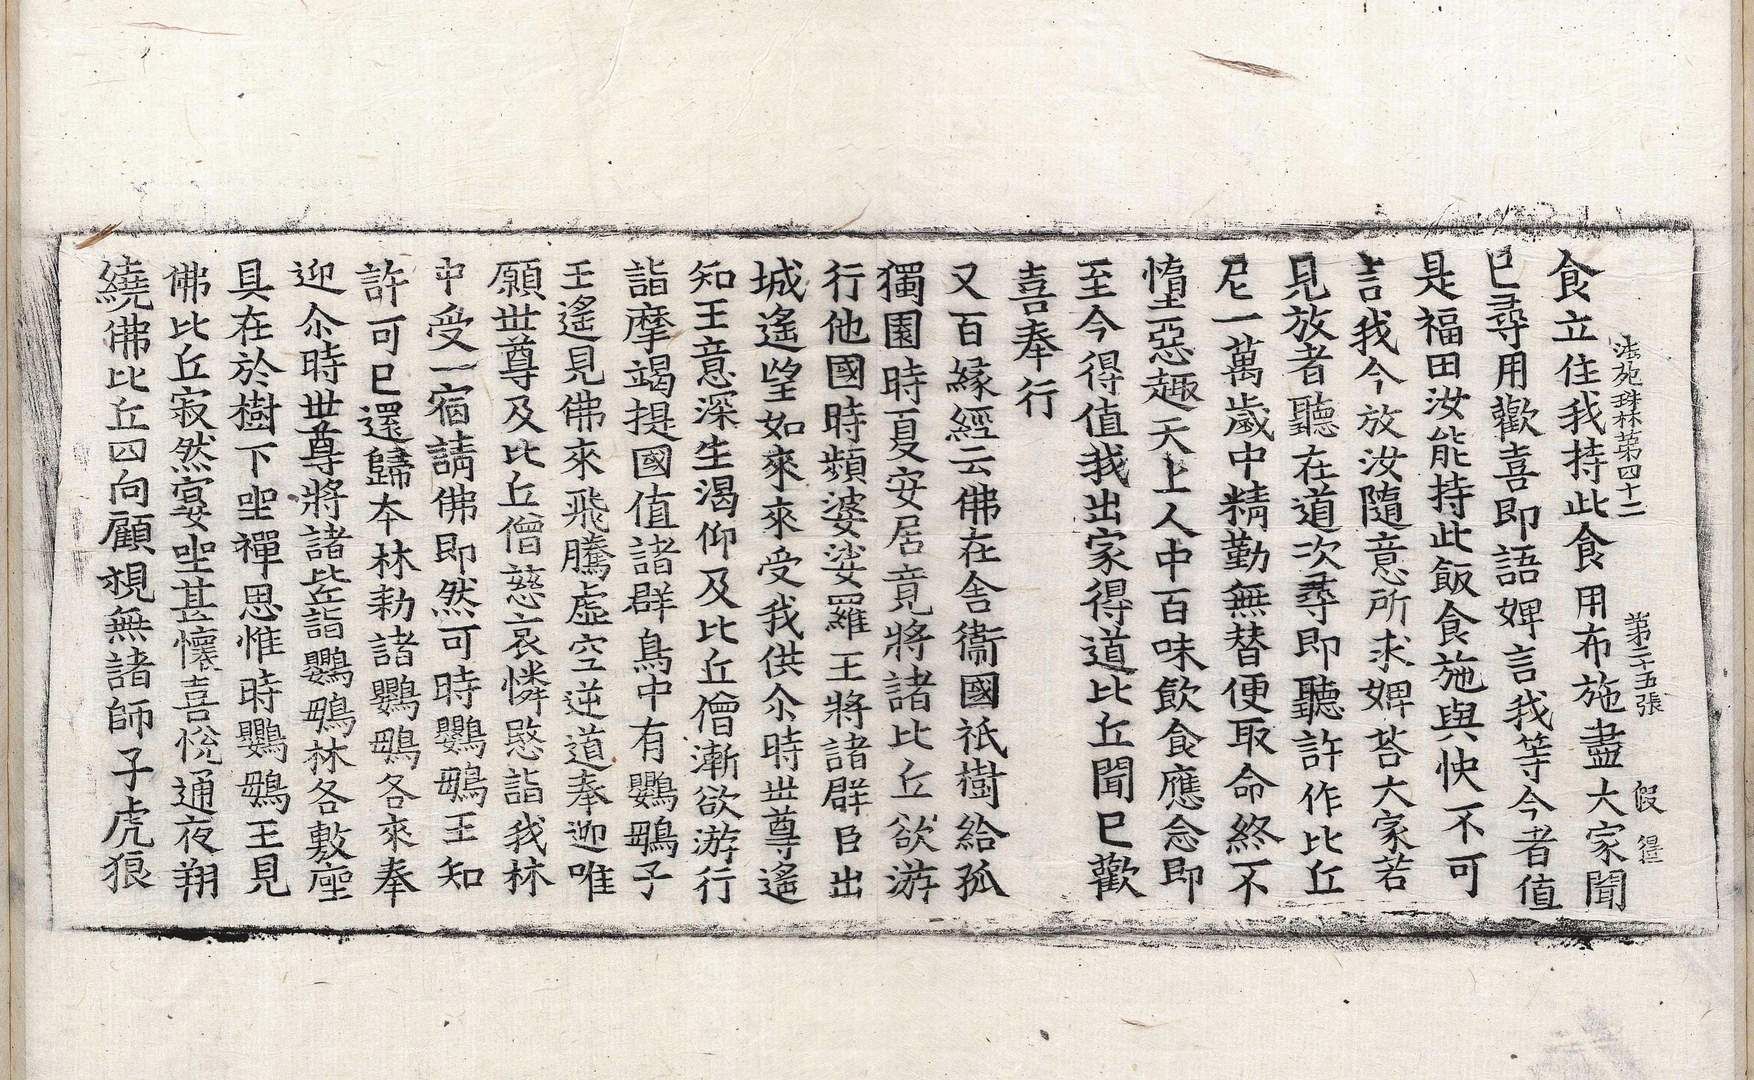 法苑珠林第四十二 第二十五張 假
食立住我持此食用布施盡大家聞
已尋用歡喜即語婢言我等今者值
是福田汝能持此飯食施與快不可
言我今放汝隨意所求婢荅大家若
見放者聽在道次尋即聽許作比丘
尼一萬歲中精勤無替便取命終不
憜惡趣天上人中百味飲食應念即
至今得值我出家得道比丘聞已歡
喜奉行
又百緣經云佛在舍衞國祇樹給孤
獨園時夏安居竟將諸比丘欲游
行他國時頻婆娑羅王將諸群臣出
城遙望如來來受我供尒時世尊遙
知王意深生渴仰及比丘僧漸欲游行
詣摩竭提國值諸群鳥中有鸚鵡子
王遙見佛來飛騰虛空逆道奉迎唯
願世尊及比丘僧慈哀憐愍詣我林
中受一宿請佛即然可時鸚鵡王知
許可已還歸本林勑諸鸚鵡各來奉
迎尒時世尊將諸比丘詣鸚鵡林各敷座
具在於樹下坐禪思惟時鸚鵡王見
佛比丘寂然宴坐甚懷喜悅通夜翔
繞佛比丘四向顧視無諸師子虎狼